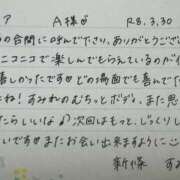 ア A様♡ R8.3.30
の合間に呼んで下さり、ありがとうござい
ニコニコで楽しんでもらえているのが伝
嬉しかったです♡どの場面でも喜んで
よね!すみれのむちっとボディ、また思
たらいいな♪次回はもっと、じっくりし
いです♡またお会い出来ますようにこ
新様 す